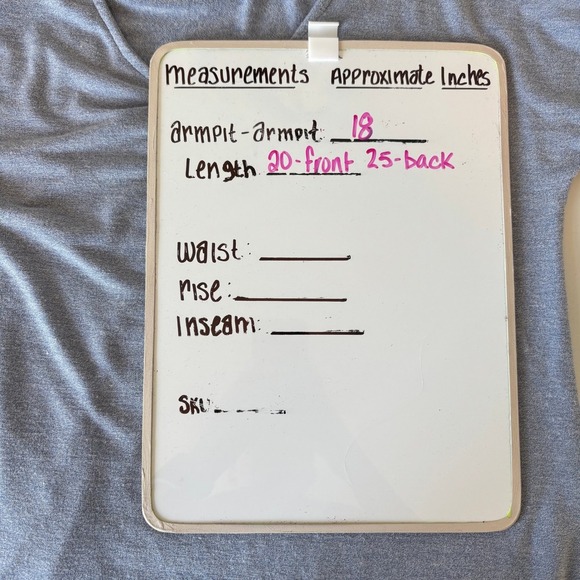 measurements Approximate Inches
armpit-armpit: 18
Length 20-front 25-back
waist:
rise:
Inseam:
SKU